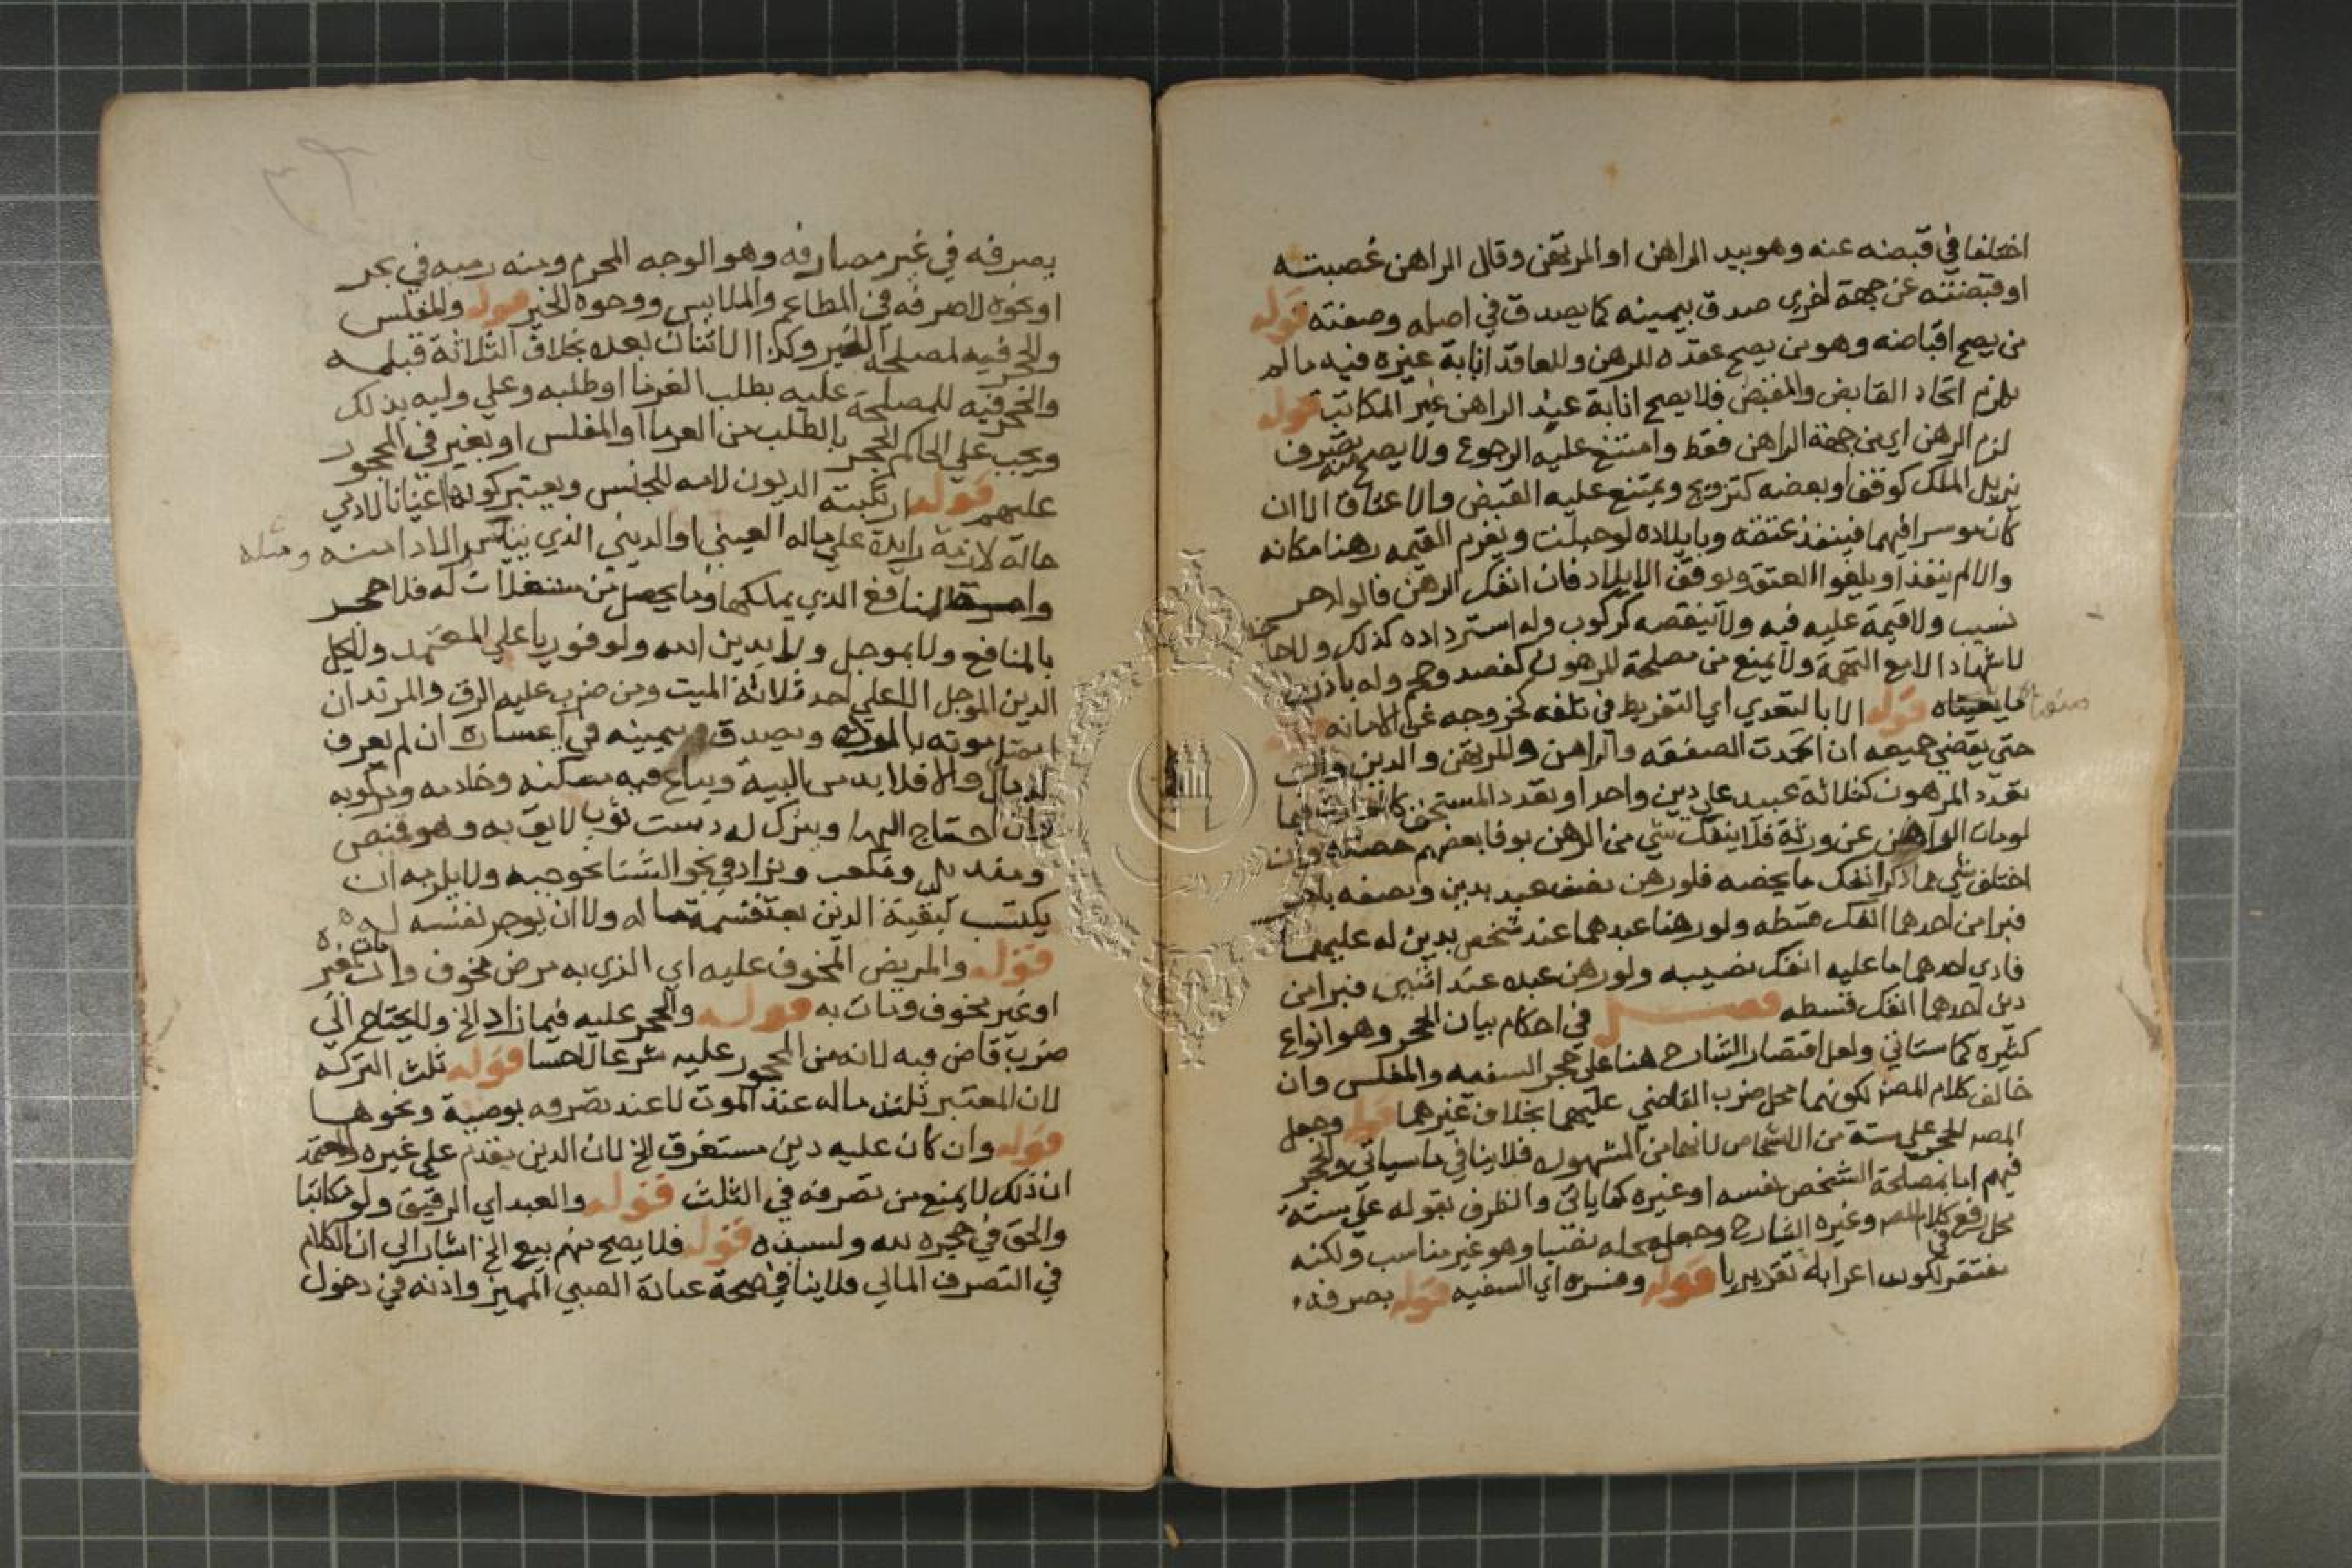 اختلفا في قبضه عنه وهو بيد الراهن او المرتهن وقال الراهن غصبته
او قبضته عن جهة اخري صدق بيمينه كما يصدق في اصله وصفته قوله
من يصح اقباضه وهو من يصح عقده للرهن وللعاقد انابة غيره فيه ما لم
يلزم اتحاد القابض والمقبض فلا يصح انابة عبد الراهن غير المكاتب قوله
لزم الرهن اي من جهة الراهن فقط وامتنع عليه الرجوع ولا يصح منه تصرف
يزيل الملك كوقف او بعضه كتزويج ويمتنع عليه القبض والاعتاق الا ان
كان موسرا فيهما فينفذ عتقه وبايلاده لو حبلت ويغرم القيمه رهنا مكانه
والا لم ينفذ او يلغوا العتق ويوقف الايلاد فان انفك الرهن فالولد حر
نسيب ولا قيمة عليه فيه ولا تنقصه كركوب وله استرداده كذلك وللحا
لاشهاد الا مع التهمة ولا يمنع من مصلحة المرهون كفصد وحجم وله باذن
ما يمنعناه قوله الا بالتعدي اي التفريط في تلفه لخروجه عن الامانه قوله
حتي يقضي جميعه ان اتحدت الصفقه والراهن والمرتهن والدين وان
تعدد المرهون كثلاثة عبيد علي دين واحد او تعدد المستحق كالوارث فيما
لو مات الراهن عن ورثة فلا ينفك شي من الرهن بوفا بعضهم حصته وان
اختلف شي مما ذكر انفك ما يخصه فلو رهن نصف عبد بدين ونصفه باخر
فبرا من احدهما انفك قسطه ولو رهنا عبدهما عند شخص بدين له عليهما
فادي احدهما ما عليه انفك نصيبه ولو رهن عبده عند اثنين فبرا من
دين احدهما انفك قسطه فصل في احكام بيان الحجر وهو انواع
كثيره كما ستاتي ولعل اقتصار الشارح هنا علي حجر السفيه والمفلس وان
خالف كلام المصنف لكونهما محل ضرب القاضي عليهما بخلاف غيرهما قوله وجعل
المصه الحجر علي ستة من الاشخاص لانها من المشهوره فلا ينافي ما سياتي والحجر
فيهم اما لمصلحة الشخص نفسه او غيره كما ياتي والظرف بقوله علي ستة
محل رفع في كلام المصه وغيره الشارح وجعل محله نصبا وهو غير مناسب ولكنه
مغتفر لكون اعرابه تقديريا قوله وفسره اي السفيه قوله يصرفه
يصرفه في غير مصارفه وهو الوجه المحرم ومنه رميه في بحر
او نحوه لا صرفه في المطاعم والملابس ووجوه الخير قوله والمفلس
والحجر فيه لمصلحة الغير وكذا الاثنان بعده بخلاف الثلاثة قبله
والحجر فيه للمصلحة عليه بطلب الغرما او طلبه وعلي وليه بذلك
ويجب علي الحاكم الحجر بالطلب من الغرما او المفلس او بغير في المحجور
عليهم قوله ارتكبته الديون لامه للجنس ويعتبر كونها اعيانا لادمي
حالة لازمة زايدة علي ماله العيني او الديني الذي يتيسر الادا منه ومثله
المنافع الذي يملكها وما يحصل من مستغلات له فلا حجر
بالمنافع ولا بموجل ولا بدين الله ولو فوريا علي المعتمد ولا يحل
الدين الموجل الا علي احد ثلاثة الميت ومن ضرب عليه الرق والمرتد ان
اتصل موته بالموت ويصدق بيمينه في اعساره ان لم يعرف
له مال والا فلا بد من البينة ويباع فيه مسكنه وخادمه ومركوبه
وان احتاج اليها ويترك له دست ثوب لايق به وهو قميص
ومنديل ومكعب ويزاد في نحو الشتا نحو جبه ولا يلزمه ان
يكتسب لبقية الدين بعد قسمة ماله ولا ان يوجر نفسه له
قوله والمريض المخوف عليه اي الذي به مرض مخوف وان مات بغيره
او غير مخوف ومات به قوله والحجر عليه فيما زاد الخ ولا يحتاج الي
ضرب قاض فيه لانه من المحجور عليه شرعا لا حسا قوله ثلث التركه
لان المعتبر ثلث ماله عند الموت لا عند تصرفه بوصية ونحوها
قوله وان كان عليه دين مستغرق الخ لان الدين يقدم علي غيره والمعتمد
ان ذلك لا يمنع من تصرفه في الثلث قوله والعبد اي الرقيق ولو مكاتبا
والحق في حجره لله ولسيده قوله فلا يصح منهم بيع الخ اشار الي ان الكلام
في التصرف المالي فلا ينافي صحة عبادة الصبي المميز واذنه في دخول